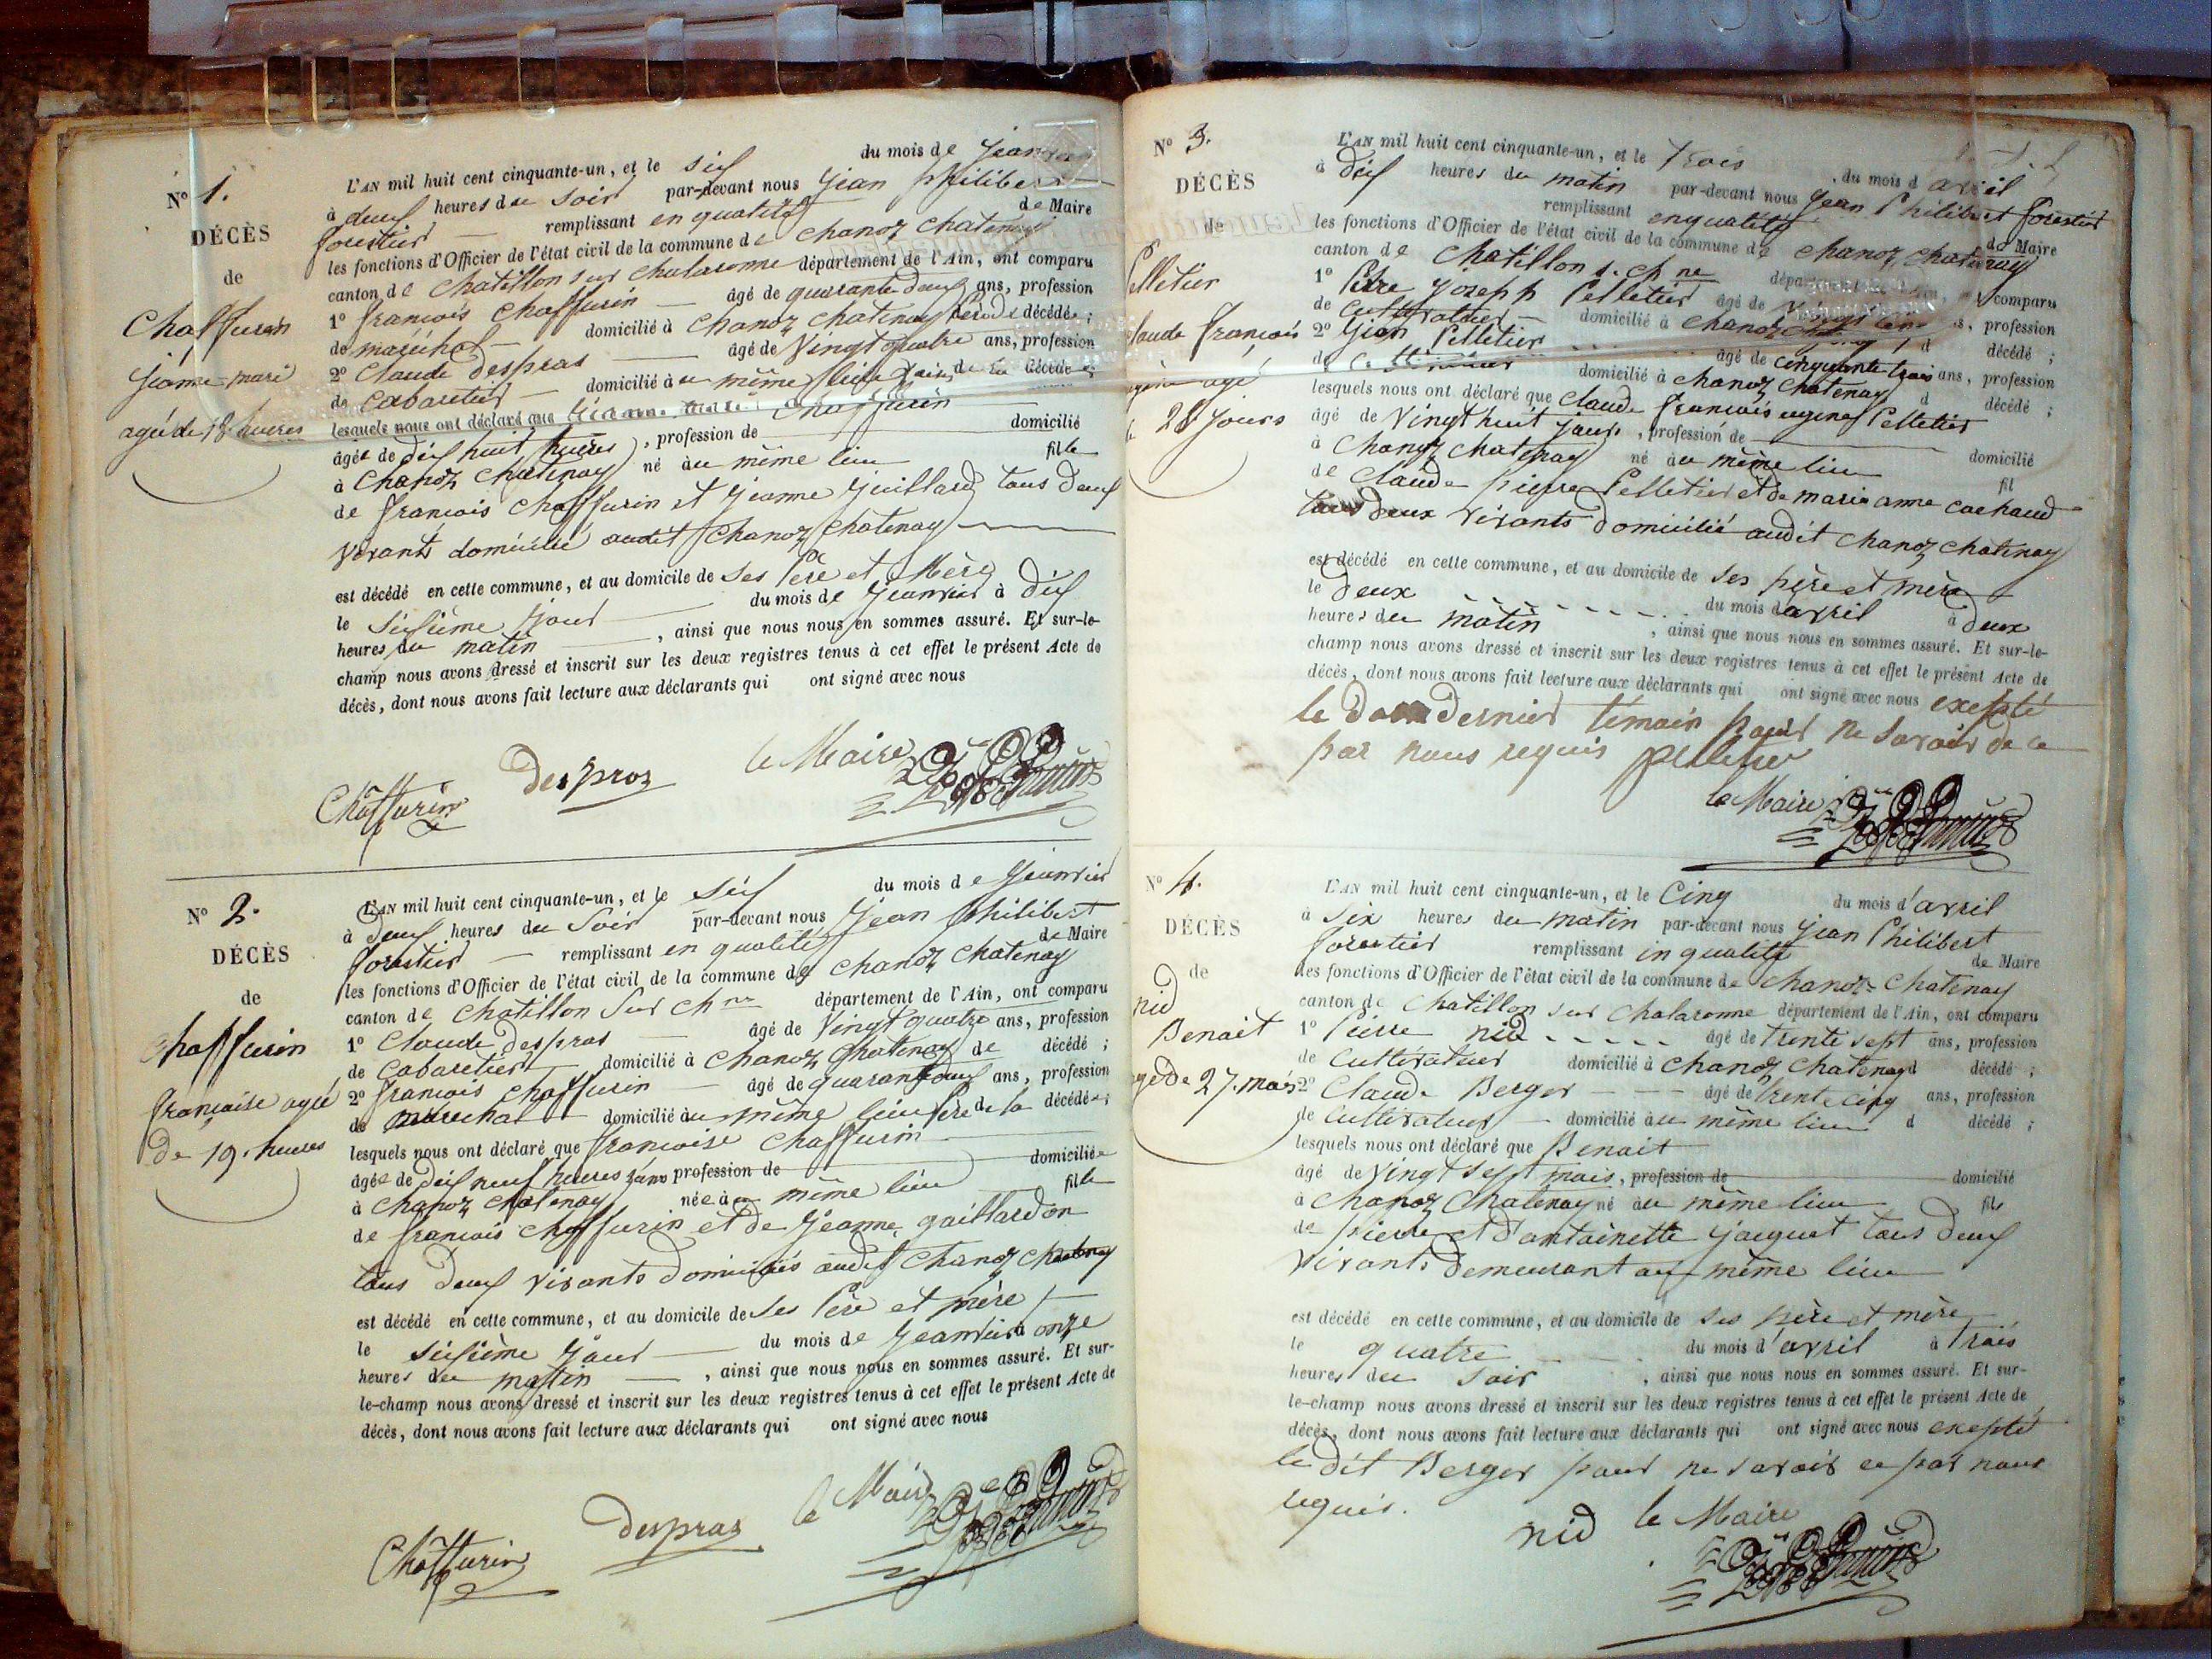 N° 1.
DÉCÈS
de
Chaffurin
Jeanne-mari
agée de 18 heures
L'AN mil huit cent cinquante-un, et le six du mois de Janvier
à deux heures du soir par-devant nous Jean philibert
forestier remplissant en qualité de Maire
les fonctions d'Officier de l'état civil de la commune de chanoz chatenay
canton de Chatillon sur chalaronne département de l'Ain, ont comparu
1° françois Chaffurin âgé de quarante deux ans, profession
de maréchal domicilié à Chanoz Chatenay père de décédée ;
2° Claude despras âgé de Vingt quatre ans, profession
de Cabaretier domicilié à au même lieu voisin de la décédée ;
lesquels nous ont déclaré que Jeanne marie Chaffurin
âgée de dix huit heures, profession de domicilié
à Chanoz Chatenay né à au même lieu fille
de françois Chaffurin et Jeanne Guillard tous deux
vivants domicilié audit Chanoz Chatenay
est décédé en cette commune, et au domicile de ses Père et Mère
le sixième jour du mois de Jeanvier à dix
heures du matin, ainsi que nous nous en sommes assuré. Et sur-le-
champ nous avons dressé et inscrit sur les deux registres tenus à cet effet le présent Acte de
décès, dont nous avons fait lecture aux déclarants qui ont signé avec nous
Chaffurin despraz le Maire
N° 2.
DÉCÈS
de
chaffurin
françoise agée
de 19. heures
L'AN mil huit cent cinquante-un, et le six du mois de Jeanvier
à deux heures du Soir par-devant nous Jean philibert
forestier remplissant en qualité de Maire
les fonctions d'Officier de l'état civil de la commune de chanoz chatenay
canton de chatillon Sur chne département de l'Ain, ont comparu
1° Claude despras âgé de Vingt quatre ans, profession
de Cabaretier domicilié à Chanoz Chatenay de décédé ;
2° françois Chaffurin âgé de quarante deux ans, profession
de marechal domicilié à au même lieu père de la décédée ;
lesquels nous ont déclaré que françoise Chaffurin
âgée de dix neuf heures sans profession de domiciliée
à Chanoz Chatenay née à au même lieu fille
de françois Chaffurin et de Jeanne gaillardon
tous deux vivants domiciliés audit Chanoz Chatenay
est décédé en cette commune, et au domicile de ses Père et mère
le sixième jour du mois de Jeanvier à onze
heures du matin, ainsi que nous nous en sommes assuré. Et sur-
le-champ nous avons dressé et inscrit sur les deux registres tenus à cet effet le présent Acte de
décès, dont nous avons fait lecture aux déclarants qui ont signé avec nous
Chaffurin despraz le Maire
N° 3.
DÉCÈS
de
Pelletier
laude françois
agé
28 jours
L'AN mil huit cent cinquante-un, et le Trois du mois d avril
à dix heures du matin par-devant nous Jean Philibert forestier
remplissant en qualité de Maire
les fonctions d'Officier de l'état civil de la commune de chanoz chatenay
canton de Chatillon s. chne comparu
1° Pierre Joseph Pelletier âgé de profession
de Cultivateur domicilié à chanoz décédé ;
2° Jean Pelletier âgé de cinquante trois ans, profession
de domicilié à Chanoz Chatenay d décédé ;
lesquels nous ont déclaré que Claude françois eugene Pelletier
âgé de Vingt huit jours, profession de domicilié
à Chanoz Chatenay né à au même lieu fil
de Claude pierre Pelletier et de marie anne cachaud
tous deux vivants domicilié audit chanoz chatenay
est décédé en cette commune, et au domicile de ses père et mère
le deux du mois d avril à deux
heures du matin, ainsi que nous nous en sommes assuré. Et sur-le-
champ nous avons dressé et inscrit sur les deux registres tenus à cet effet le présent Acte de
décès, dont nous avons fait lecture aux déclarants qui ont signé avec nous excepté
le dernier témoin pour ne savoir de ce
par nous requis pelletier
le Maire
N° 4.
DÉCÈS
de
nid
Benoit
agé de 27. mois
L'AN mil huit cent cinquante-un, et le Cinq du mois d'avril
à Six heures du matin par-devant nous Jean Philibert
forestier remplissant en qualité de Maire
les fonctions d'Officier de l'état civil de la commune de Chanoz-Chatenay
canton de Chatillon sur Chalaronne département de l'Ain, ont comparu
1° Pierre nid âgé de trente sept ans, profession
de Cultivateur domicilié à Chanoz Chatenay d décédé ;
2° Claude Berger âgé de trente cinq ans, profession
de Cultivateur domicilié à au même lieu d décédé ;
lesquels nous ont déclaré que Benoit
âgé de Vingt Sept mois, profession de domicilié
à Chanoz Chatenay né à au même lieu fils
de pierre et d'antoinette jacquet tous deux
vivants demeurant au même lieu
est décédé en cette commune, et au domicile de ses père et mère
le quatre du mois d'avril à trois
heures du soir, ainsi que nous nous en sommes assuré. Et sur-
le-champ nous avons dressé et inscrit sur les deux registres tenus à cet effet le présent Acte de
décès, dont nous avons fait lecture aux déclarants qui ont signé avec nous excepté
le dit Berger pour ne savoir ce par nous
requis.
nid le Maire